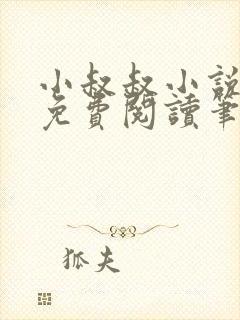 小叔叔小說
免費閱讀筆
狐夫